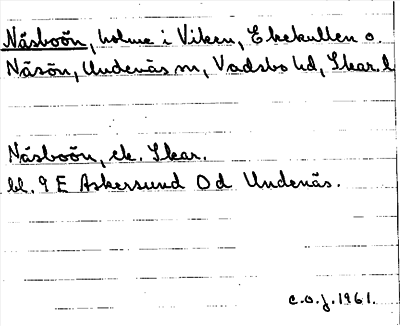 Näsboön, holme i Viken, Ekekullen o.
Näsön, Undenäs sn, Vadsbo hd, Skar. l
Näsboön, ek. Skar.
bl. 9 E Askersund Od Undenäs.
c.o.j. 1961.